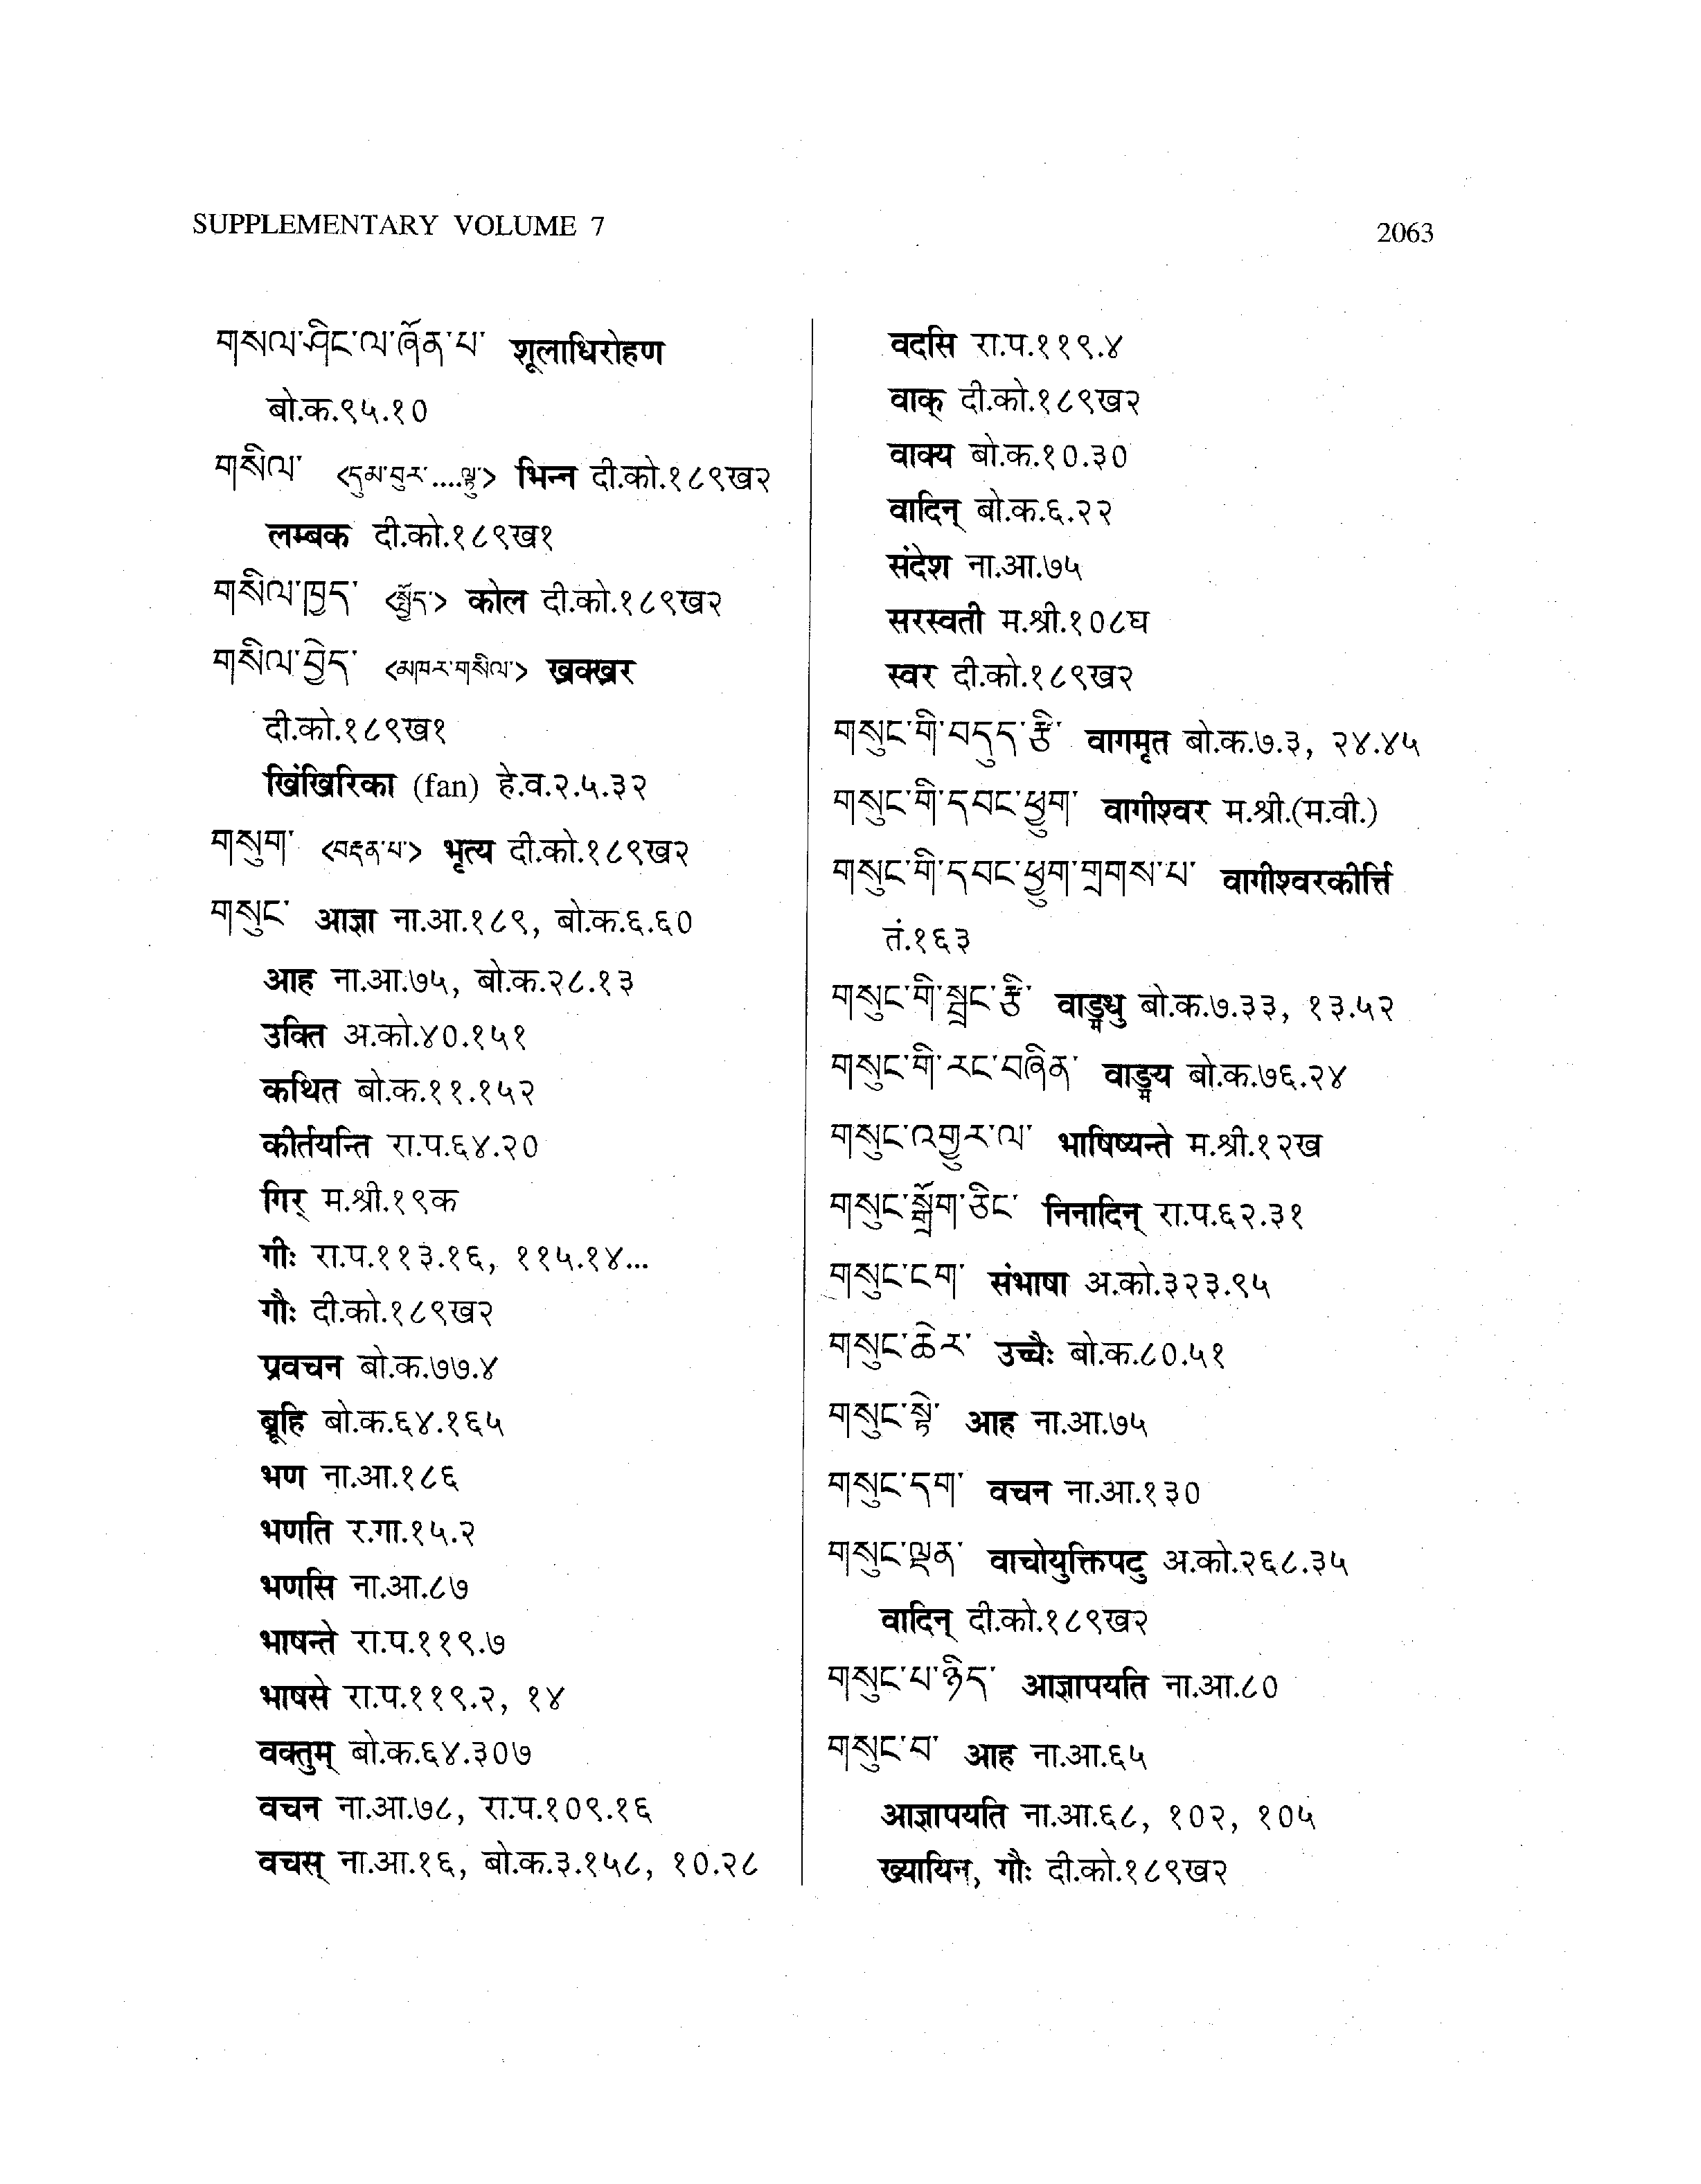 SUPPLEMENTARY VOLUME 7
2063
གསལ་ཤིང་ལ་ཞོན་པ་ शूलाधिरोहण
बो.क.९५.१०
གསིལ་ <དུམ་བུར་....ལྟུ་> भिन्न दी.को.१८९ख२
लम्बक दी.को.१८९ख१
གསིལ་ཁྱད་ <སྤྱོད་> कोल दी.को.१८९ख२
གསིལ་བྱེད་ <མཁར་གསིལ་> ख्रक्ख्रर
दी.को.१८९ख१
खिंखिरिका (fan) हे.व.२.५.३२
གསུག་ <བརྡན་པ་> भृत्य दी.को.१८९ख२
གསུང་ आज्ञा ना.आ.१८९, बो.क.६.६०
आह ना.आ.७५, बो.क.२८.१३
उक्ति अ.को.४०.१५१
कथित बो.क.११.१५२
कीर्तयन्ति रा.प.६४.२०
गिर् म.श्री.१९क
गीः रा.प.११३.१६, ११५.१४...
गौः दी.को.१८९ख२
प्रवचन बो.क.७७.४
ब्रूहि बो.क.६४.१६५
भण ना.आ.१८६
भणति र.गा.१५.२
भणसि ना.आ.८७
भाषन्ते रा.प.११९.७
भाषसे रा.प.११९.२, १४
वक्तुम् बो.क.६४.३०७
वचन ना.आ.७८, रा.प.१०९.१६
वचस् ना.आ.१६, बो.क.३.१५८, १०.२८
वदसि रा.प.११९.४
वाक् दी.को.१८९ख२
वाक्य बो.क.१०.३०
वादिन् बो.क.६.२२
संदेश ना.आ.७५
सरस्वती म.श्री.१०८घ
स्वर दी.को.१८९ख२
གསུང་གི་བདུད་རྩི་ वागमृत बो.क.७.३, २४.४५
གསུང་གི་དབང་ཕྱུག་ वागीश्वर म.श्री.(म.वी.)
གསུང་གི་དབང་ཕྱུག་གྲགས་པ་ वागीश्वरकीर्त्ति
तं.१६३
གསུང་གི་སྦྲང་རྩི་ वाङ्मधु बो.क.७.३३, १३.५२
གསུང་གི་རང་བཞིན་ वाङ्मय बो.क.७६.२४
གསུང་འགྱུར་ལ་ भाषिष्यन्ते म.श्री.१२ख
གསུང་སྒྲོག་ཅིང་ निनादिन् रा.प.६२.३१
གསུང་ངག་ संभाषा अ.को.३२३.९५
གསུང་ཆེར་ उच्चैः बो.क.८०.५१
གསུང་སྟེ་ आह ना.आ.७५
གསུང་དག་ वचन ना.आ.१३०
གསུང་ལྡན་ वाचोयुक्तिपटु अ.को.२६८.३५
वादिन् दी.को.१८९ख२
གསུང་པ་ཉིད་ आज्ञापयति ना.आ.८०
གསུང་བ་ आह ना.आ.६५
आज्ञापयति ना.आ.६८, १०२, १०५
ख्यायिन्, गौः दी.को.१८९ख२